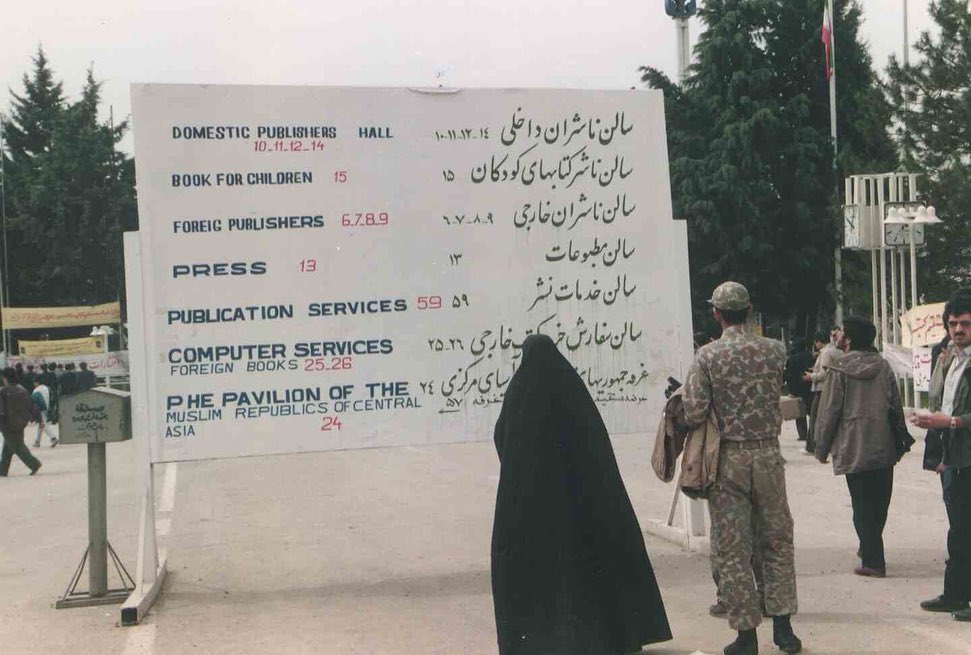 DOMESTIC PUBLISHERS HALL
10_11_12_14
سالن ناشران داخلی ۱۰_۱۱_۱۲_۱۴
BOOK FOR CHILDREN 15
سالن ناشر کتابهای کودکان ۱۵
FOREIG PUBLISHERS 6_7_8_9
سالن ناشران خارجی ۶_۷_۸_۹
PRESS 13
سالن مطبوعات ۱۳
PUBLICATION SERVICES 59
سالن خدمات نشر ۵۹
COMPUTER SERVICES
FOREIGN BOOKS 25_26
سالن سفارش خارجی ۲۵_۲۶
PHE PAVILION OF THE
MUSLIM REPUBLICS OF CENTRAL
ASIA 24
غرفه جمهوریهای آسیای مرکزی ۲۴
عرضه مستقیم غرفه ۵۷